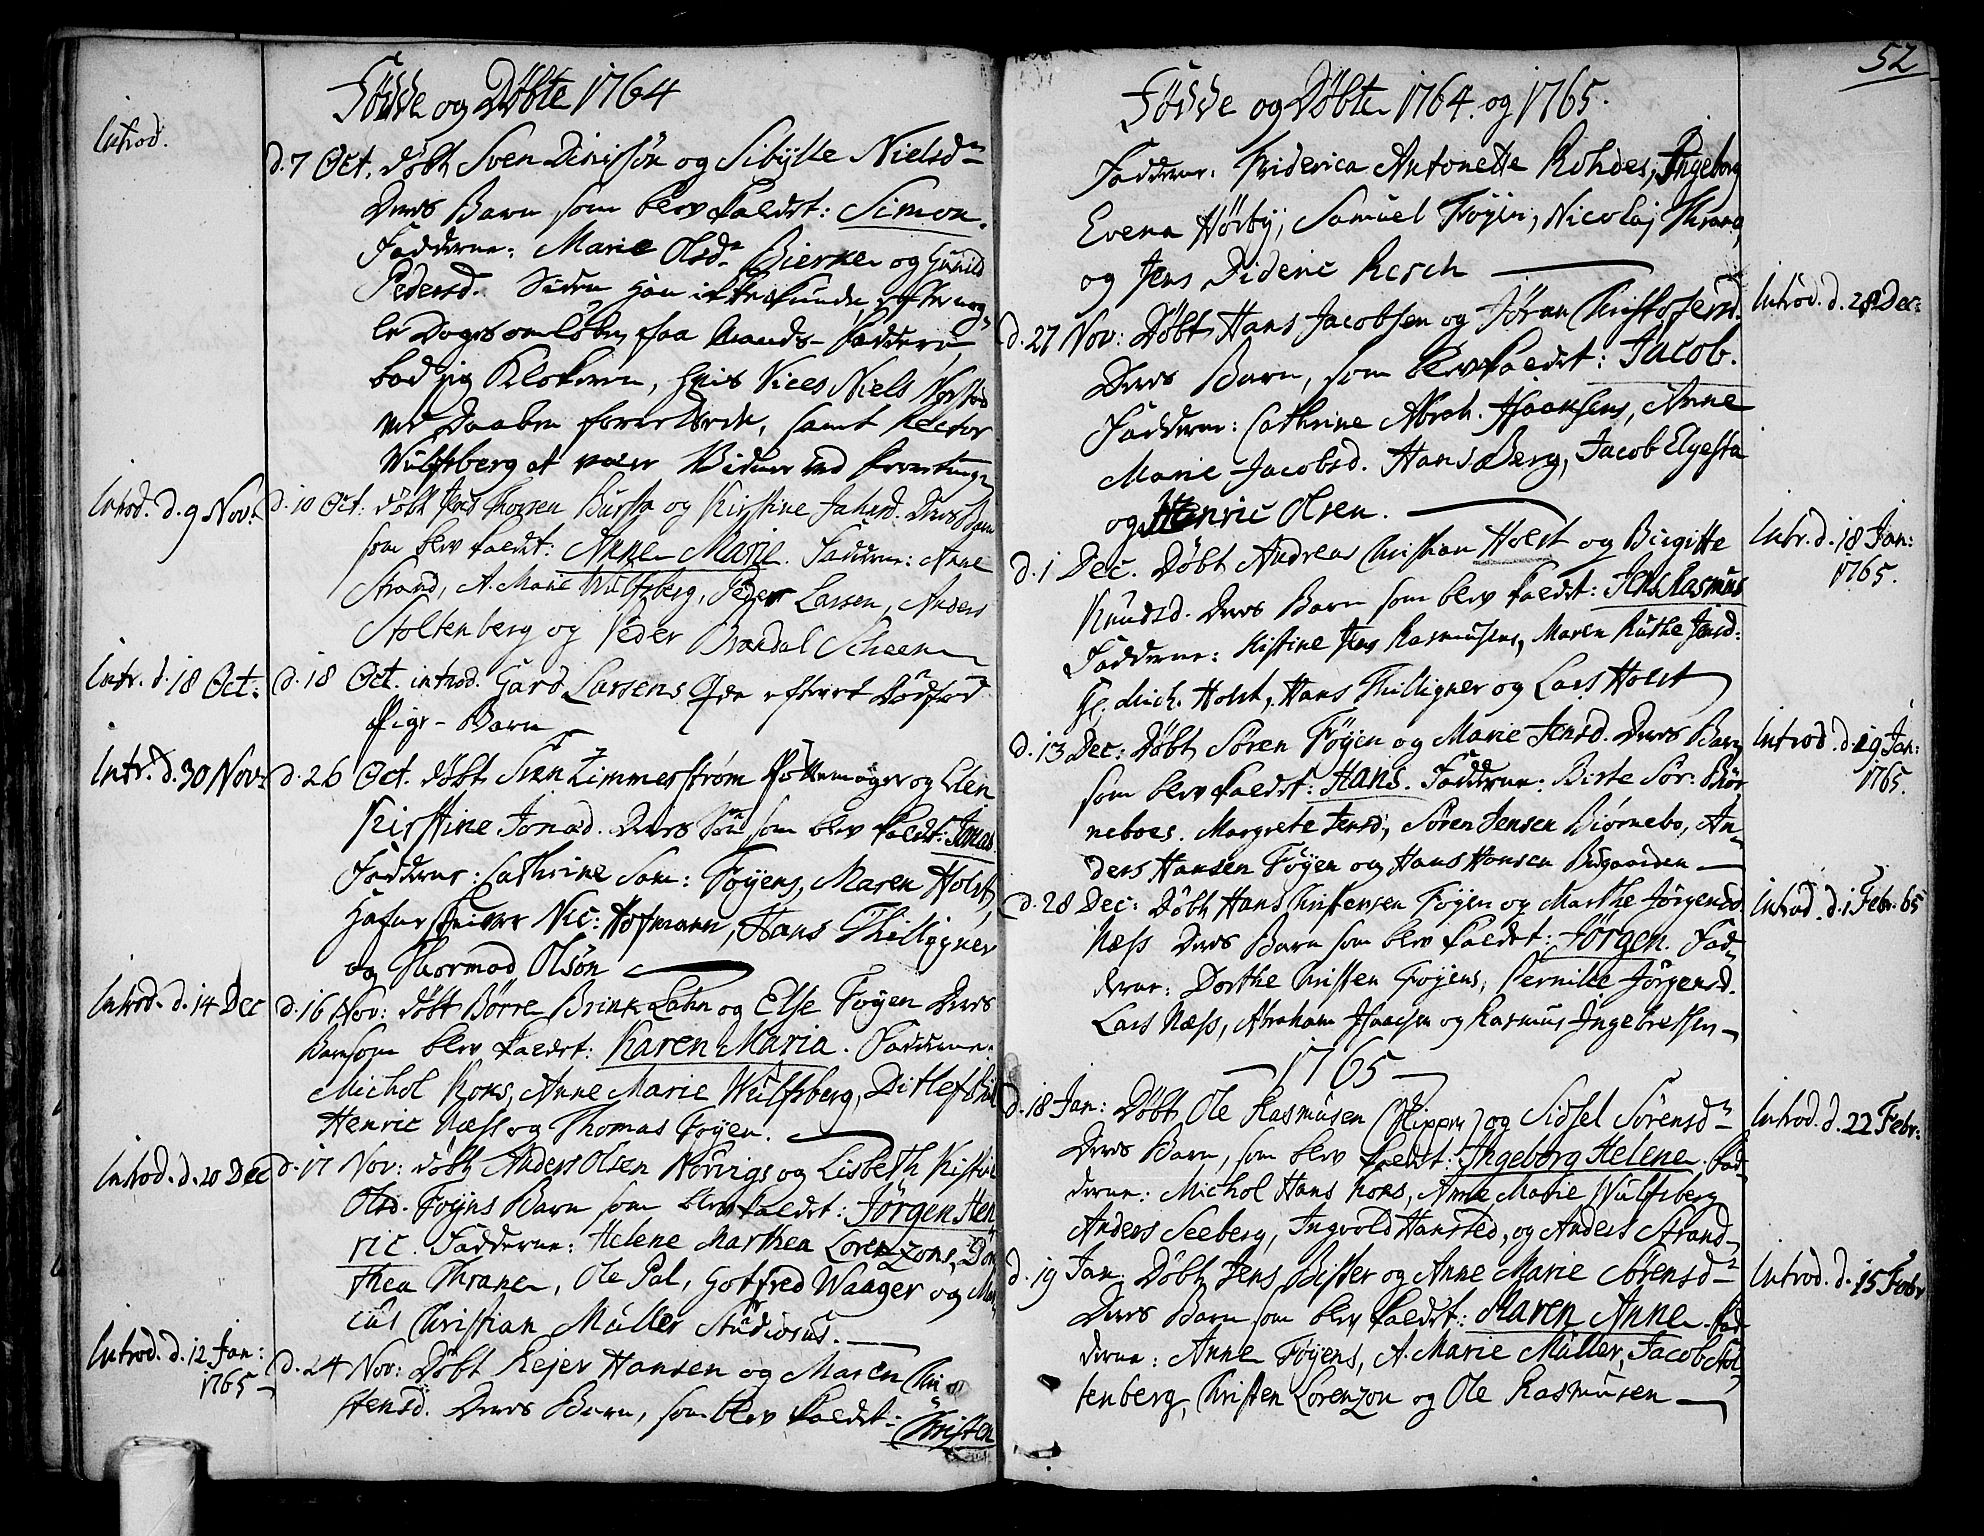 Fødde og Døbte 1764
Introd.
d. 7 Oct. Døbt Sven Dinissøn og Sibylle Nielsdr
Deres Barn som blev kaldet: Simon.
Fadderne: Marie Olsdr Bierke og Gunild
Pedersd. Siden han ikke kunde, efter nog-
le Dages omløben, faa Mands-Faddere,
bad jeg Klokeren, hvis Vices Niels
ved Daaben forrettede, samt Rector
Wulfsberg at være Vidner ved
Introd. d. 9 Nov: d. 10 Oct: Døbt Thorsen og Kirstine Deres Barn
som blev kaldet: Anne Marie. Fadderne: Anne
Strand, A. Marie Wulfsberg, Peder Larsen, Anders
Stoltenberg og Peder Brendal Scheen
Intr. d. 18 Oct: d. 18 Oct. introd. Gard Larsens efter et Dødfød
Pige-Barn
Intr. d. 30 Nov: d. 26 Oct. Døbt Sven Zimmerstrøm Pottemager og Elen
Kirstine Jonasd. Deres Søn som blev kaldet: Jonas.
Fadderne: Cathrine Sam: Føyens, Maren Holst,
Nic: Hofmann, Hans Thilligner
og Thormod Olsøn
Introd. d. 14 Dec d. 16 Nov: Døbt Børre Brink Lahn og Else Føyen Deres
Barn som blev kaldet: Karen Maria. Fadderne.
Michol Koks, Anne Marie Wulfsberg, Ditlef
Henric Næss og Thomas Føyen.
Introd. d. 20 Dec d. 17 Nov: Døbt Anders Olsen Norvigs og Lisbeth Kistine
Olsd. Føyns Barn som blev kaldet: Jørgen Hen
ric. Fadderne: Helene Marthea Lorenzons, Dor
thea Thrane, Ole Pal, Gotfred Waager og Mar
cus Christian Müller Studiosus.
Introd. d. 12 Jan:
1765
d. 24 Nov: Døbt Rejer Hansen og Maren Chri
stensd. Deres Barn, som blev kaldet: Christen
52
Fødde og Døbte 1764. og 1765.
Fadderne: Friderica Antonette Rohdes, Ingeborg
Evena Hørby, Samuel Føyen, Nicolaj Thrane,
og Jens Dideric Resch
d. 27 Nov: Døbt Hans Jacobsen og Jøran Christofersd. Introd. d. 28 Dec:
Deres Barn, som blev kaldet: Jacob.
Fadderne: Cathrine Abrah. Isaansens, Anne
Marie Jacobsd. Hans Berg, Jacob Elgesta
og Henric Olsen.
d. 1 Dec. Døbt Andreas Christian Holst og Birgitte Intr. d. 18 Jan:
1765.
Knudsd. Deres Barn som blev kaldet: Jens Rasmus
Fadderne: Kistine Jens Rasmusens, Maren Ruthe Jensd:
Mich. Holst, Hans Thilligner og Lars Holst
d. 13 Dec: Døbt Søren Føyen og Marie Jensd. Deres Barn Introd. d. 19 Jan:
1765.
som blev kaldet: Hans. Fadderne: Birte Sør: Biør-
neboes. Margrete Jensd, Søren Jensen Biørnebo, An-
ders Hansen Føyen og Hans Hansen Bugaarden
d. 28 Dec: Døbt Hans Christensen Føyen og Marthe Jørgensd Introd. d. 1 Febr. 65
Næss Deres Barn som blev kaldet: Jørgen. Fad-
derne: Dorthe Christen Føyens, Pernille Jørgensd.
Lars Næss, Abraham Isaacsen og Rasmus Ingebretsen
1765
d. 18 Jan: Døbt Ole Rasmusen (Skipper) og Sidsel Sørensdr Introd. d. 22 Febr:
Deres Barn, som blev kaldet: Ingeborg Helene. Fad-
derne: Michol Hans Koks, Anne Marie Wulfsberg
Anders Seeberg, Ingvold Hansted, og Anders Strand
d. 19 Jan Døbt Jens Bister og Anne Marie Sørensdr Introd. d. 15 Febr
Deres Barn som blev kaldet: Karen Anne. Fad-
derne: Anne Føyens, A. Marie Müller, Jacob Stol-
tenberg, Christen Lorenzon og Ole Rasmusen